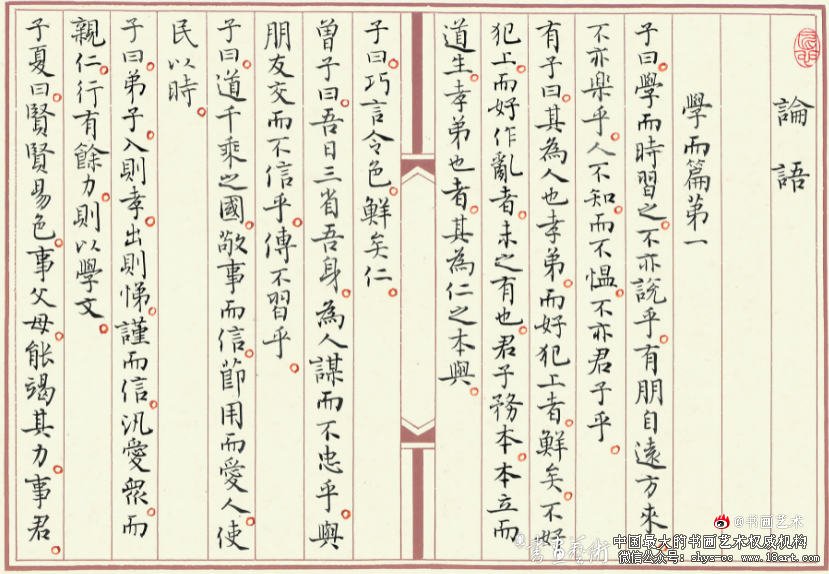 論語
學而篇第一
子曰。學而時習之。不亦說乎。有朋自遠方來。
不亦樂乎。人不知。而不愠。不亦君子乎。
有子曰。其為人也孝弟。而好犯上者。鮮矣。不好
犯上。而好作亂者。未之有也。君子務本。本立而
道生。孝弟也者。其為仁之本與。
子曰。巧言令色。鮮矣仁。
曾子曰。吾日三省吾身。為人謀而不忠乎。與
朋友交而不信乎。傳不習乎。
子曰。道千乘之國。敬事而信。節用而愛人。使
民以時。
子曰。弟子。入則孝。出則悌。謹而信。汎愛眾。而
親仁。行有餘力。則以學文。
子夏曰。賢賢易色。事父母。能竭其力。事君。
@书画艺术
中国最大的书画艺术权威机构
微信公众号: shys-cc www.18art.com